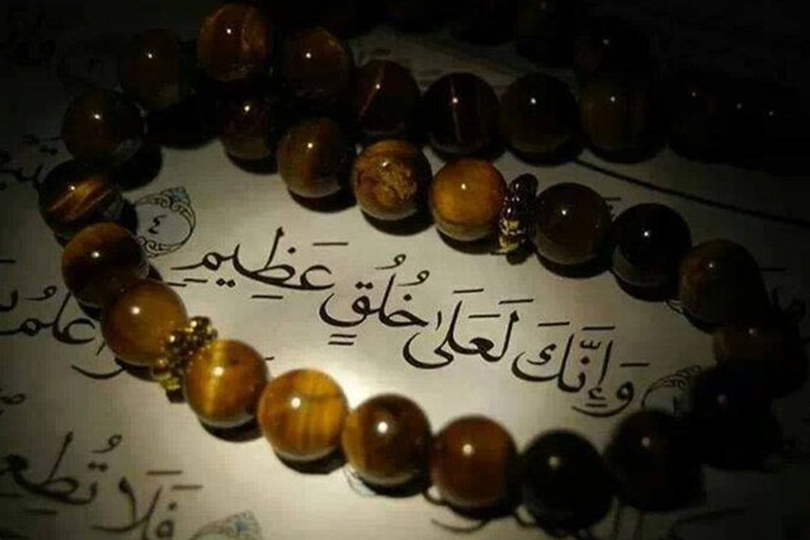 وَإِنَّكَ لَعَلَىٰ خُلُقٍ عَظِيمٍ ٤
فَلَا تُطِعِ